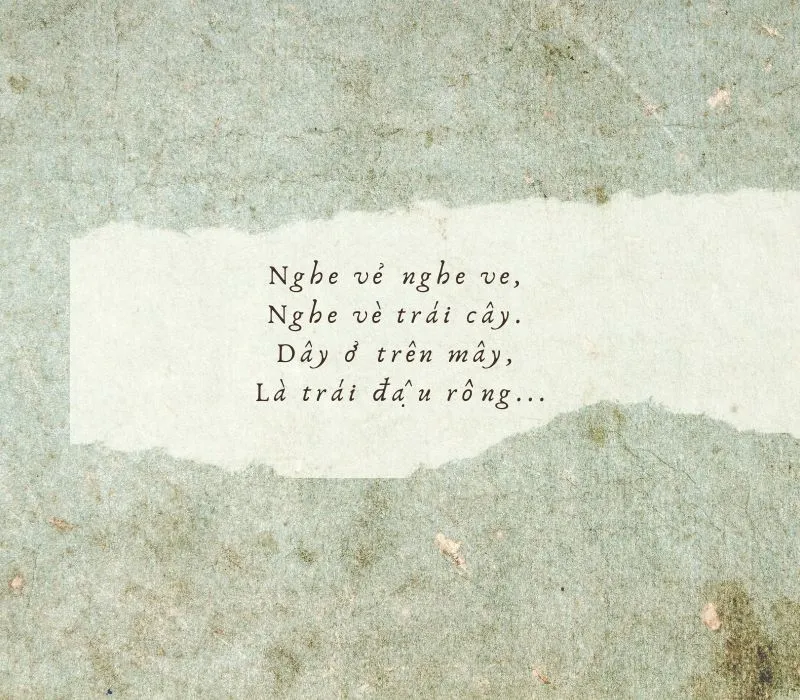 Nghe vẻ nghe ve,
Nghe vè trái cây.
Dây ở trên mây,
Là trái đậu rồng...